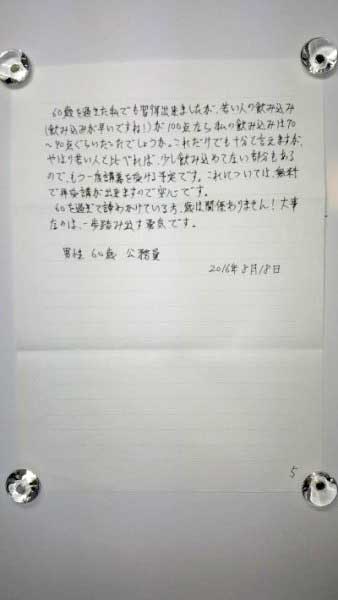 60歳を過ぎた私でも習得出来ましたが、若い人の飲み込み
(飲み込みが早いですね!)が100点なら私の飲み込みは70
〜80点ぐらいだったでしょうか。これだけでも十分と言えますが、
やはり若い人と比べれば、少し飲み込めてない部分もある
ので、もう一度講義を受ける予定です。これについては、無料
で再受講が出来ますので安心です。
60を過ぎて諦めかけている方、歳は関係ありません!大事
なのは、一歩踏み出す勇気です。
男性 60歳 公務員
2016年8月18日
5